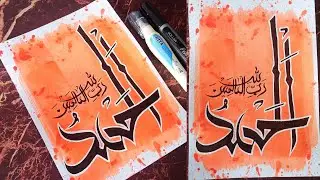 الحمدُ
لله رب العالمين
الحمدُ
لله رب العالمين